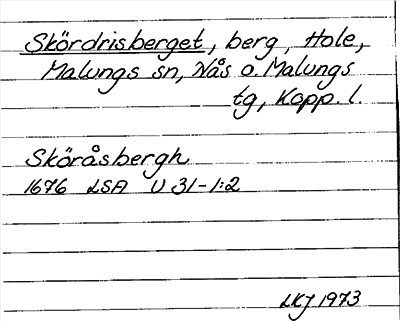 Skördrisberget, berg, Hole,
Malungs sn, Nås o. Malungs
tg, Kopp. l.
Sköråsbergh
1676 LSA U 31-1:2
LKJ 1973